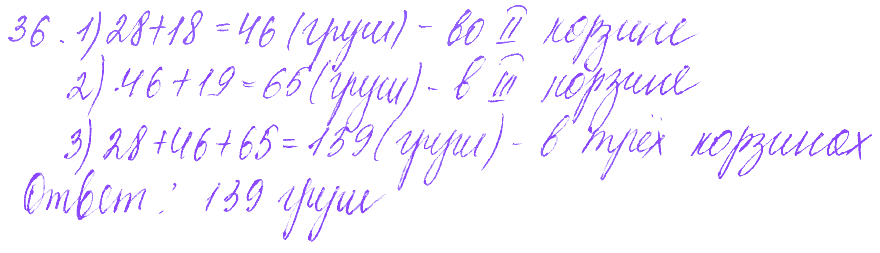 36. 1) 28+18=46 (груш) - во II корзине
2) 46+19=65 (груш) - в III корзине
3) 28+46+65=139 (груш) - в трёх корзинах
Ответ: 139 груш